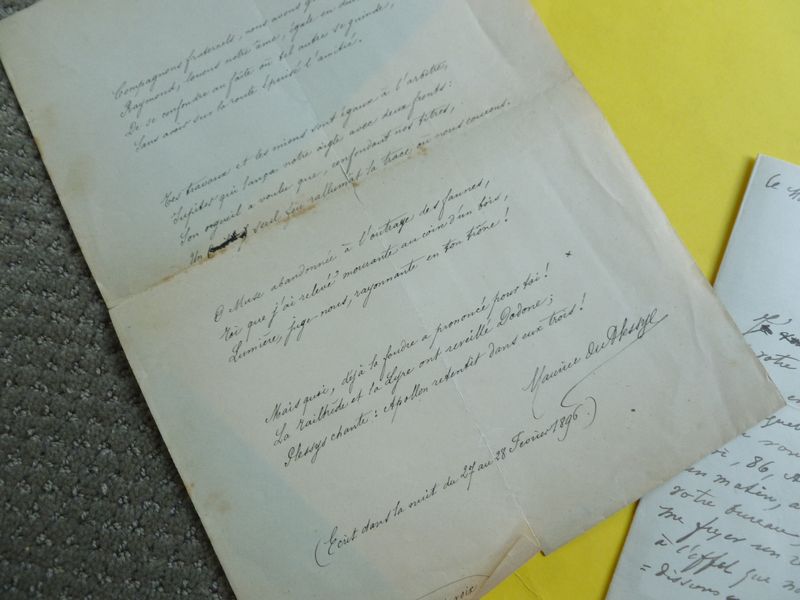 Compagnons fraternels, nous avons
Raymond, louons notre âme, égale en
De se confondre au faîte où tel autre se guinde,
Sans avoir sur la route épuisé l'amitié.
Tes travaux et les miens sont égaux à l'arbitre,
Jupiter qui lança notre aigle avec deux fronts:
Son orgueil a voulu que, confondant nos titres,
Un seul feu rallumât la trace où nous courons.
O Muse abandonnée à l'outrage des faunes,
Toi que j'ai relevé' mourante au coin d'un bois,
Lumière, juge-nous, rayonnante en ton trône!
Mais quoi, déjà la foudre a prononcé pour toi!
La Tailhède et la Lyre ont réveillé Dodone;
Plessys chante: Apollon retentit dans eux trois!
Maurice Du Plessys
(Écrit dans la nuit du 27 au 28 Février 1896.)
votre
86, A
un matin, a
votre bureau
me fixer un
à l'effet que